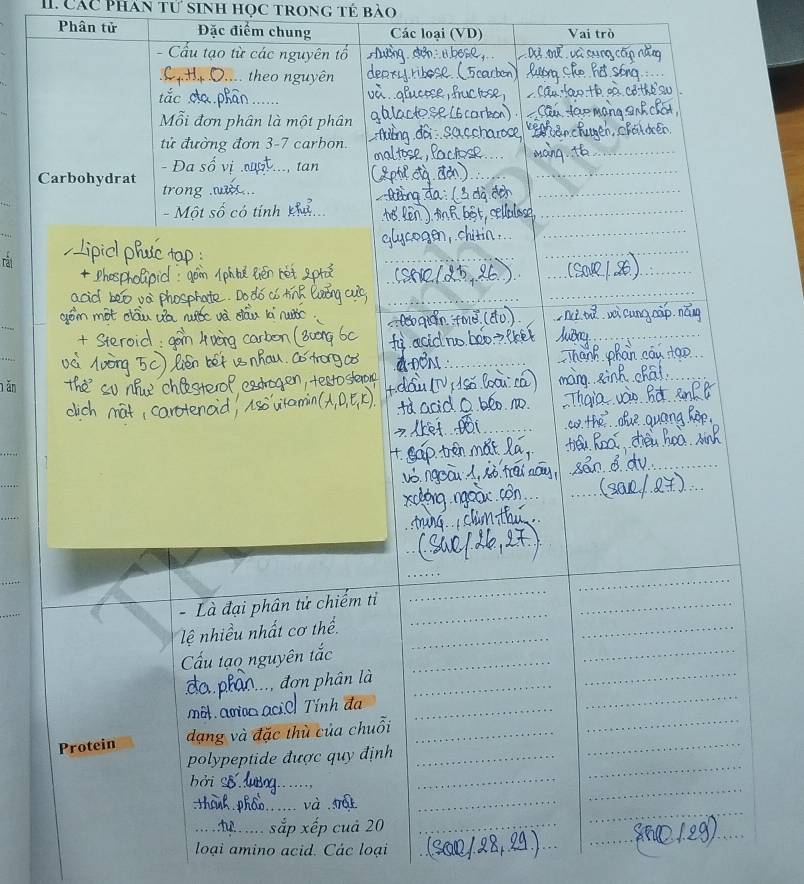 II. CÁC PHÂN TỬ SINH HỌC TRONG TẾ BÀO
Phân tử Đặc điểm chung Các loại (VD) Vai trò
Carbohydrat
- Cấu tạo từ các nguyên tố
C, H, O.... theo nguyên
tắc đa phân......
Mỗi đơn phân là một phân
tử đường đơn 3-7 carbon.
- Đa số vị ngọt..., tan
trong nước...
- Một số có tính khử...
-đường đơn: ribose,..
deoxyribose (5carbon)
và glucose, fructose,
galactose (6 carbon).
-đường đôi: saccharose,
maltose, lactose....
(2 phtử đg đơn)....
-đường đa: (3 đg đơn
trở lên) tinh bột, cellulose,
glycogen, chitin...
(SGK/25, 26)..
- Dự trữ và cung cấp năng
lượng cho hđ sống.....
- cấu tạo tb và cơ thể sv.
- cấu tạo màng sinh chất,
vận chuyển, cholesteron
màng tb
(SGK/26)
-Lipid phức tạp:
+ phospholipid: gồm 1phtử liên kết 2phtử
acid béo và phosphate. Do đó có tính lưỡng cực,
gồm một đầu ưa nước và đầu kị nước
+ Steroid: gồm 4 vòng carbon (3 vòng 6c
và 1 vòng 5c) liên kết vs nhau. Có trong cơ
thể sv như cholesterol, estrogen, testosteron,
dịch mật, carotenoid, 1 số vitamin (A, D, E, K).
-Lipid đơn giản: +mỡ (đv).
từ acid no béo → lkết
đơn
+dầu (TV, 1số loài cá)
từ acid béo ko no.
→ lkết đôi
+ sáp trên mặt lá,
vỏ ngoài 1 số trái cây,
xương ngoài côn
trùng.., chim thú...
(SGK/26, 27)
- Dự trữ và cung cấp năng
lượng
- Thành phần cấu tạo
màng sinh chất.
- Tham gia vào hđ sinh lí
cơ thể như quang hợp,
tiêu hoá, điều hoà sinh
sản ở đv.
(SGK/27)...
Protein
- Là đại phân tử chiếm tỉ
lệ nhiều nhất cơ thể.
Cấu tạo nguyên tắc
đa phân..., đơn phân là
một amino acid Tính đa
dạng và đặc thù của chuỗi
polypeptide được quy định
bởi số lượng......,
thành phần...... và trật
....tự...... sắp xếp cuả 20
loại amino acid. Các loại
(SGK/28, 29)...
SGK/29)